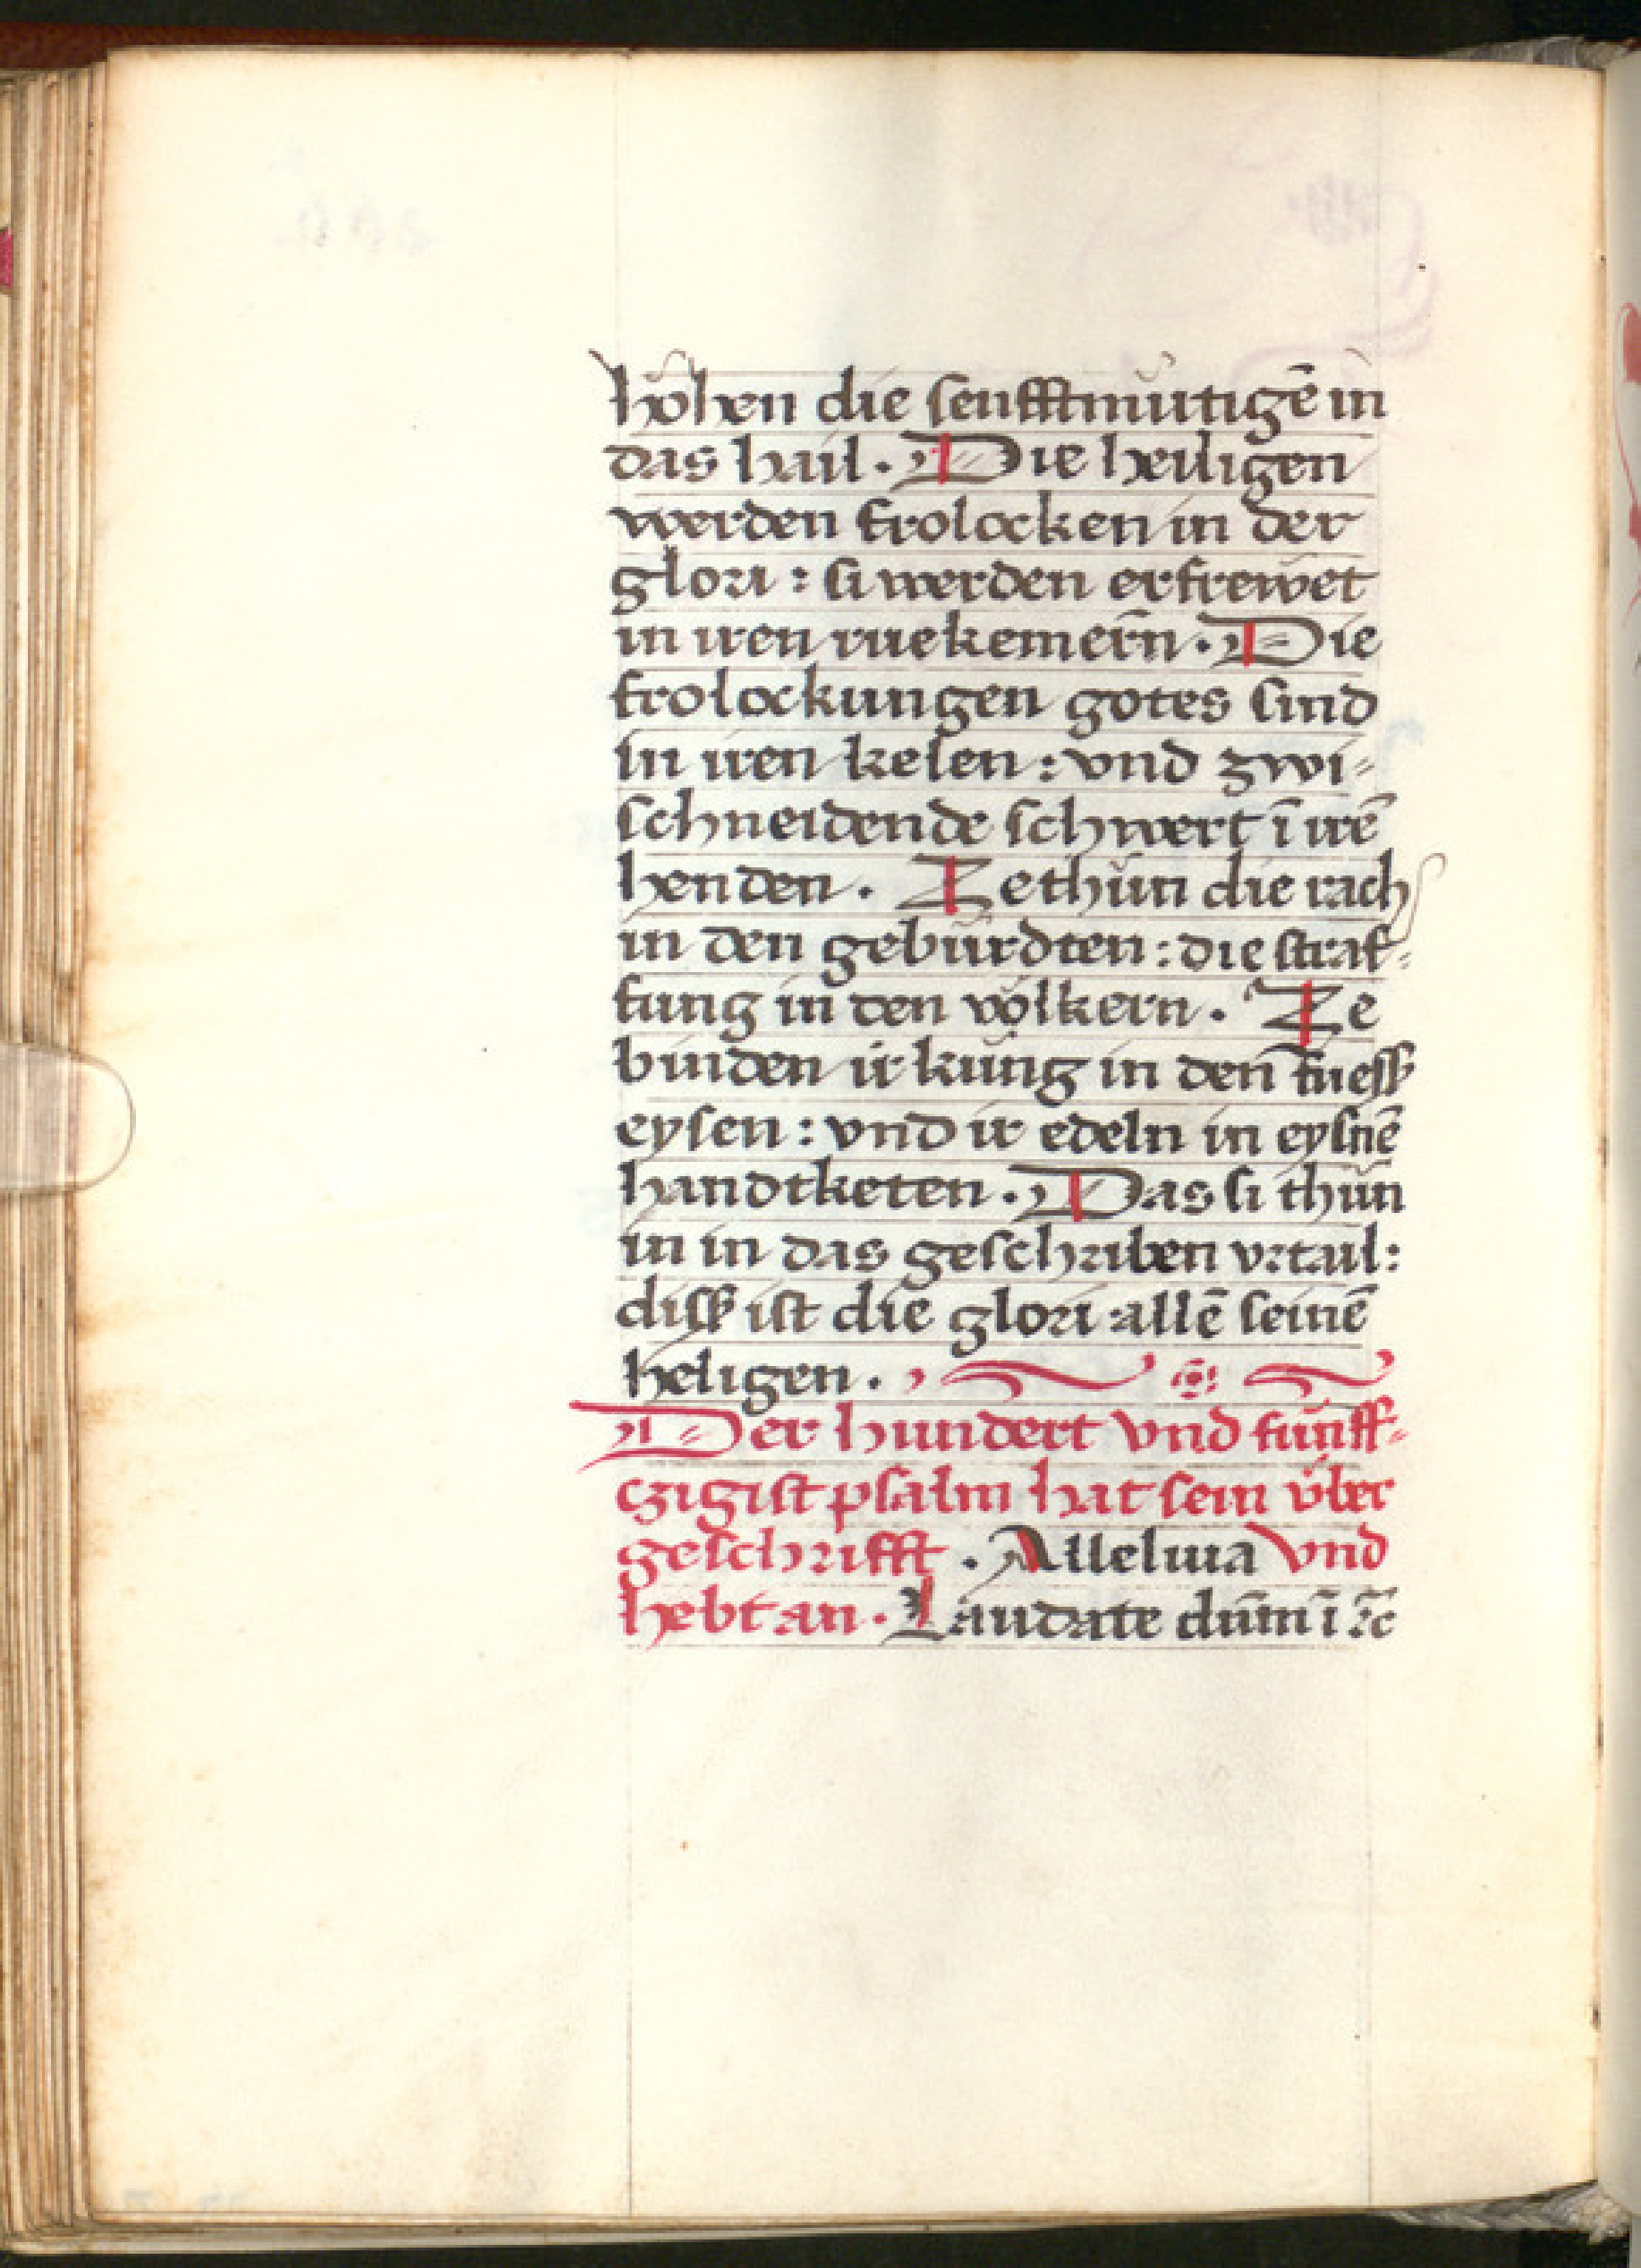 höhen die senfftmůtigē in
das hail. Die heiligen
werden frolocken in der
glori: si werden erfrewet
in iren ruekemern̄. Die
frolockungen gotes sind
in iren kelen: vnd zwi=
schneidende schwert ī irē
henden. Ze thůn die rach
in den gebürdten: die straf=
fung in den völkern. Ze
binden ir küng in den fuess
eysen: vnd ir edeln in eysnē
handtketen. Das si thůn
in in das geschriben vrtail:
diss ist die glori allē seinē
heligen.
Der hundert vnd fünff=
czigist psalm hat sein über
geschrifft. Alleluia vnd
hebt an. Laudate dn̄m ī ⁊c̄